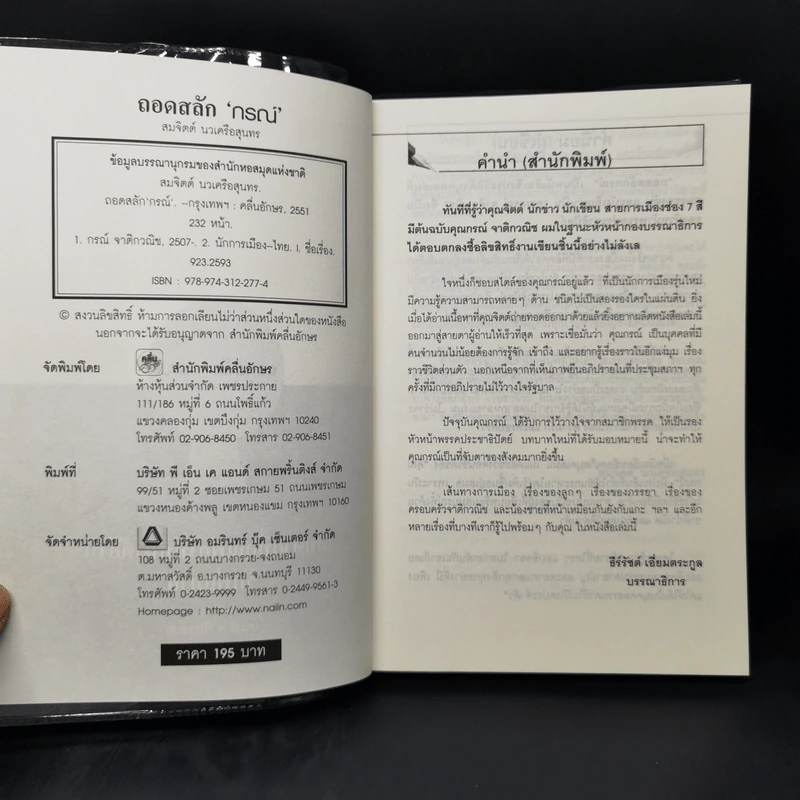 ถอดสลัก ‘กรณ์’
สมจิตต์ นวเครือสุนทร
ข้อมูลบรรณานุกรมของสำนักหอสมุดแห่งชาติ
สมจิตต์ นวเครือสุนทร.
ถอดสลัก‘กรณ์’. –กรุงเทพฯ : คลื่นอักษร, 2551
232 หน้า.
1. กรณ์ จาติกวณิช, 2507-. 2. นักการเมือง–ไทย. I. ชื่อเรื่อง.
923.2593
ISBN : 978-974-312-277-4
© สงวนลิขสิทธิ์ ห้ามการลอกเลียนไม่ว่าส่วนหนึ่งส่วนใดของหนังสือ
นอกจากจะได้รับอนุญาตจาก สำนักพิมพ์คลื่นอักษร
จัดพิมพ์โดย
สำนักพิมพ์คลื่นอักษร
ห้างหุ้นส่วนจำกัด เพชรประกาย
111/186 หมู่ที่ 6 ถนนโพธิ์แก้ว
แขวงคลองกุ่ม เขตบึงกุ่ม กรุงเทพฯ 10240
โทรศัพท์ 02-906-8450 โทรสาร 02-906-8451
พิมพ์ที่
บริษัท พี เอ็น เค แอนด์ สกายพริ้นติงส์ จำกัด
99/51 หมู่ที่ 2 ซอยเพชรเกษม 51 ถนนเพชรเกษม
แขวงหนองค้างพลู เขตหนองแขม กรุงเทพฯ 10160
จัดจำหน่ายโดย
บริษัท อมรินทร์ บุ๊ค เซ็นเตอร์ จำกัด
108 หมู่ที่ 2 ถนนบางกรวย-จงถนอม
ต.มหาสวัสดิ์ อ.บางกรวย จ.นนทบุรี 11130
โทรศัพท์ 0-2423-9999 โทรสาร 0-2449-9561-3
Homepage : http://www.naiin.com
ราคา 195 บาท
คำนำ (สำนักพิมพ์)
ทันทีที่รู้ว่าคุณจิตต์ นักข่าว นักเขียน สายการเมืองช่อง 7 สี
มีต้นฉบับคุณกรณ์ จาติกวณิช ผมในฐานะหัวหน้ากองบรรณาธิการ
ได้ตอบตกลงซื้อลิขสิทธิ์งานเขียนชิ้นนี้อย่างไม่ลังเล
ใจหนึ่งก็ชอบสไตล์ของคุณกรณ์อยู่แล้ว ที่เป็นนักการเมืองรุ่นใหม่
มีความรู้ความสามารถหลายๆ ด้าน ชนิดไม่เป็นสองรองใครในแผ่นดิน ยิ่ง
เมื่อได้อ่านเนื้อหาที่คุณจิตต์ถ่ายทอดออกมาด้วยแล้วยิ่งอยากผลิตหนังสือเล่มนี้
ออกมาสู่สายตาผู้อ่านให้เร็วที่สุด เพราะเชื่อมั่นว่า คุณกรณ์ เป็นบุคคลที่มี
คนจำนวนไม่น้อยต้องการรู้จัก เข้าถึง และอยากรู้เรื่องราวในอีกแง่มุม เรื่อง
ราวชีวิตส่วนตัว นอกเหนือจากที่เห็นภาพยืนอภิปรายในที่ประชุมสภาฯ ทุก
ครั้งที่มีการอภิปรายไม่ไว้วางใจรัฐบาล
ปัจจุบันคุณกรณ์ ได้รับการไว้วางใจจากสมาชิกพรรค ให้เป็นรอง
หัวหน้าพรรคประชาธิปัตย์ บทบาทใหม่ที่ได้รับมอบหมายนี้ น่าจะทำให้
คุณกรณ์เป็นที่จับตาของสังคมมากยิ่งขึ้น
เส้นทางการเมือง เรื่องของลูกๆ เรื่องของภรรยา เรื่องของ
ครอบครัวจาติกวณิช และน้องชายที่หน้าเหมือนกันยังกับแกะ ฯลฯ และอีก
หลายเรื่องที่บางทีเราก็รู้ไปพร้อมๆ กับคุณ ในหนังสือเล่มนี้
ธีร์รัชต์ เอี่ยมตระกูล
บรรณาธิการ